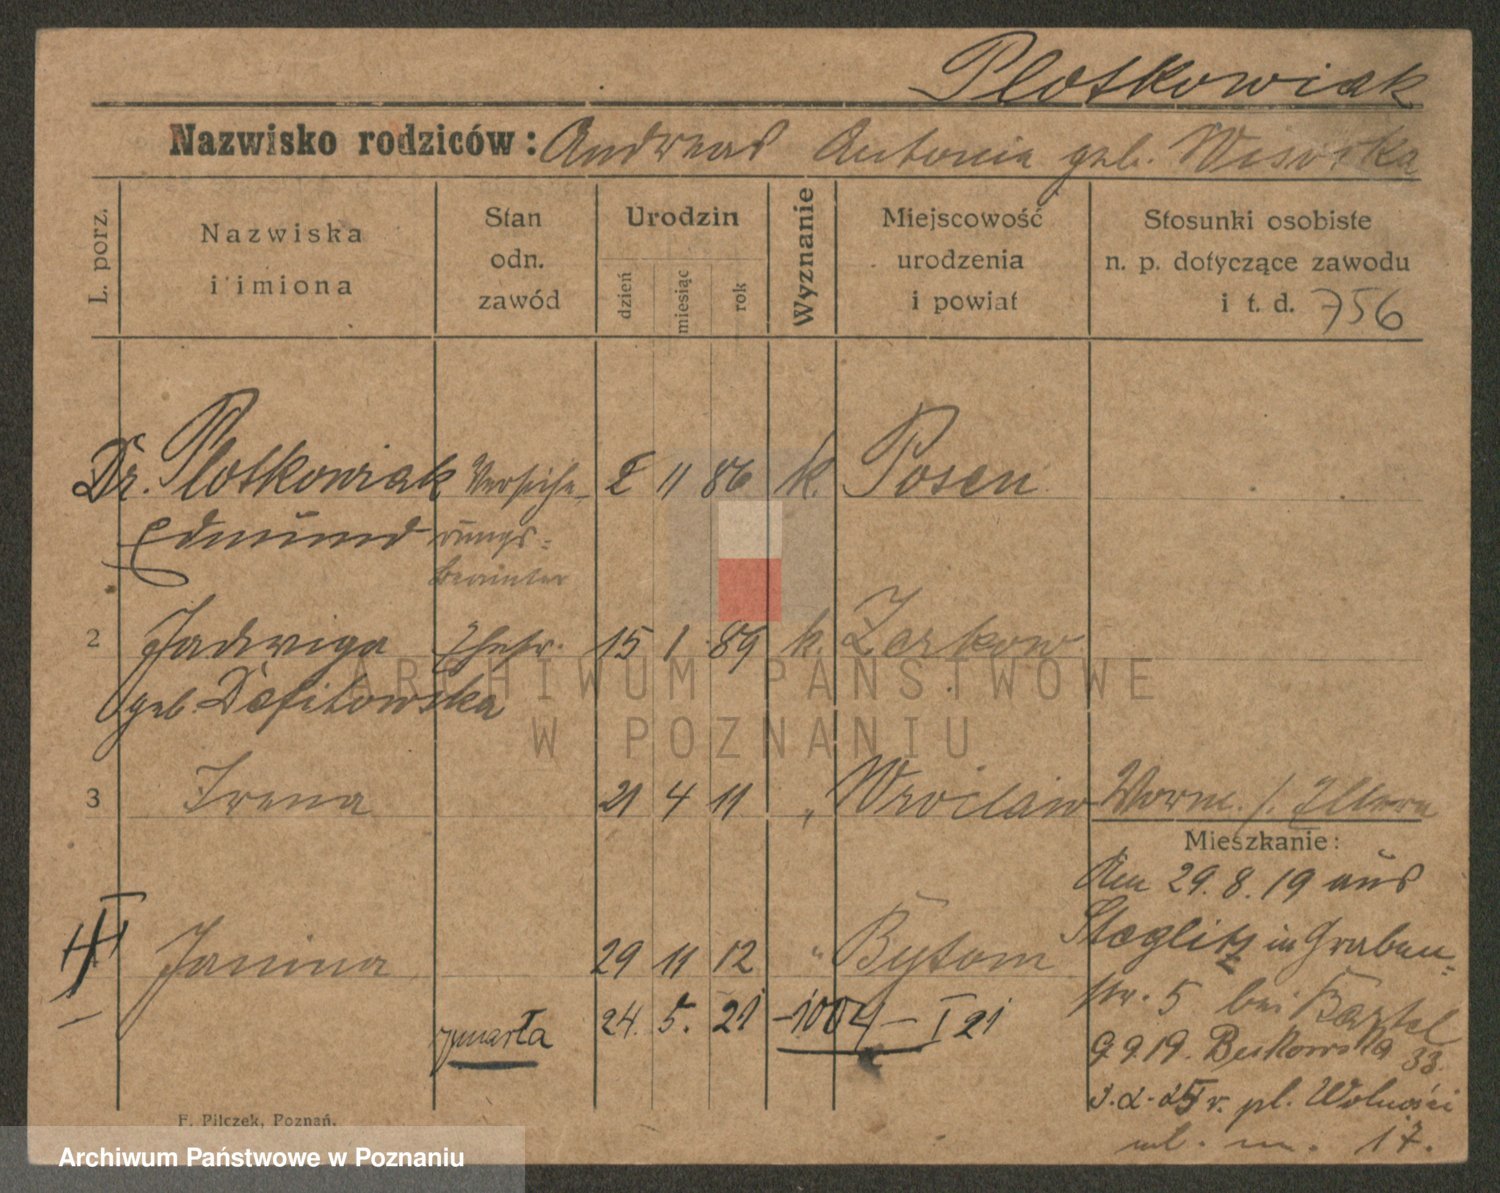 Plotkowiak
Nazwisko rodziców: Andreas Antonia geb.
L. porz.
Nazwiska
i imiona
Stan
odn.
zawód
Urodzin
dzień
miesiąc
rok
Wyznanie
Miejscowość
urodzenia
i powiat
Stosunki osobiste
n. p. dotyczące zawodu
i t. d. 756
Dr. Plotkowiak Versiche- 2 11 86 k. Posen
Edmund rungs-
beamter
2 Jadwiga Ehefr. 15 1 89 k. Zerkow
geb.
3 Irena 21 4 11 " Wrocław Worm.
Mieszkanie:
Am 29. 8. 19 aus
Steglitz in Graben-
str. 5 bei Bartel
9 9 19. Bukowska 33.
pl. Wolności
m. 17.
Janina 29 11 12 " Bytom
zmarła 24. 5. 21 -1004- I 21
F. Pilczek, Poznań.
ARCHIWUM PAŃSTWOWE
W POZNANIU
Archiwum Państwowe w Poznaniu